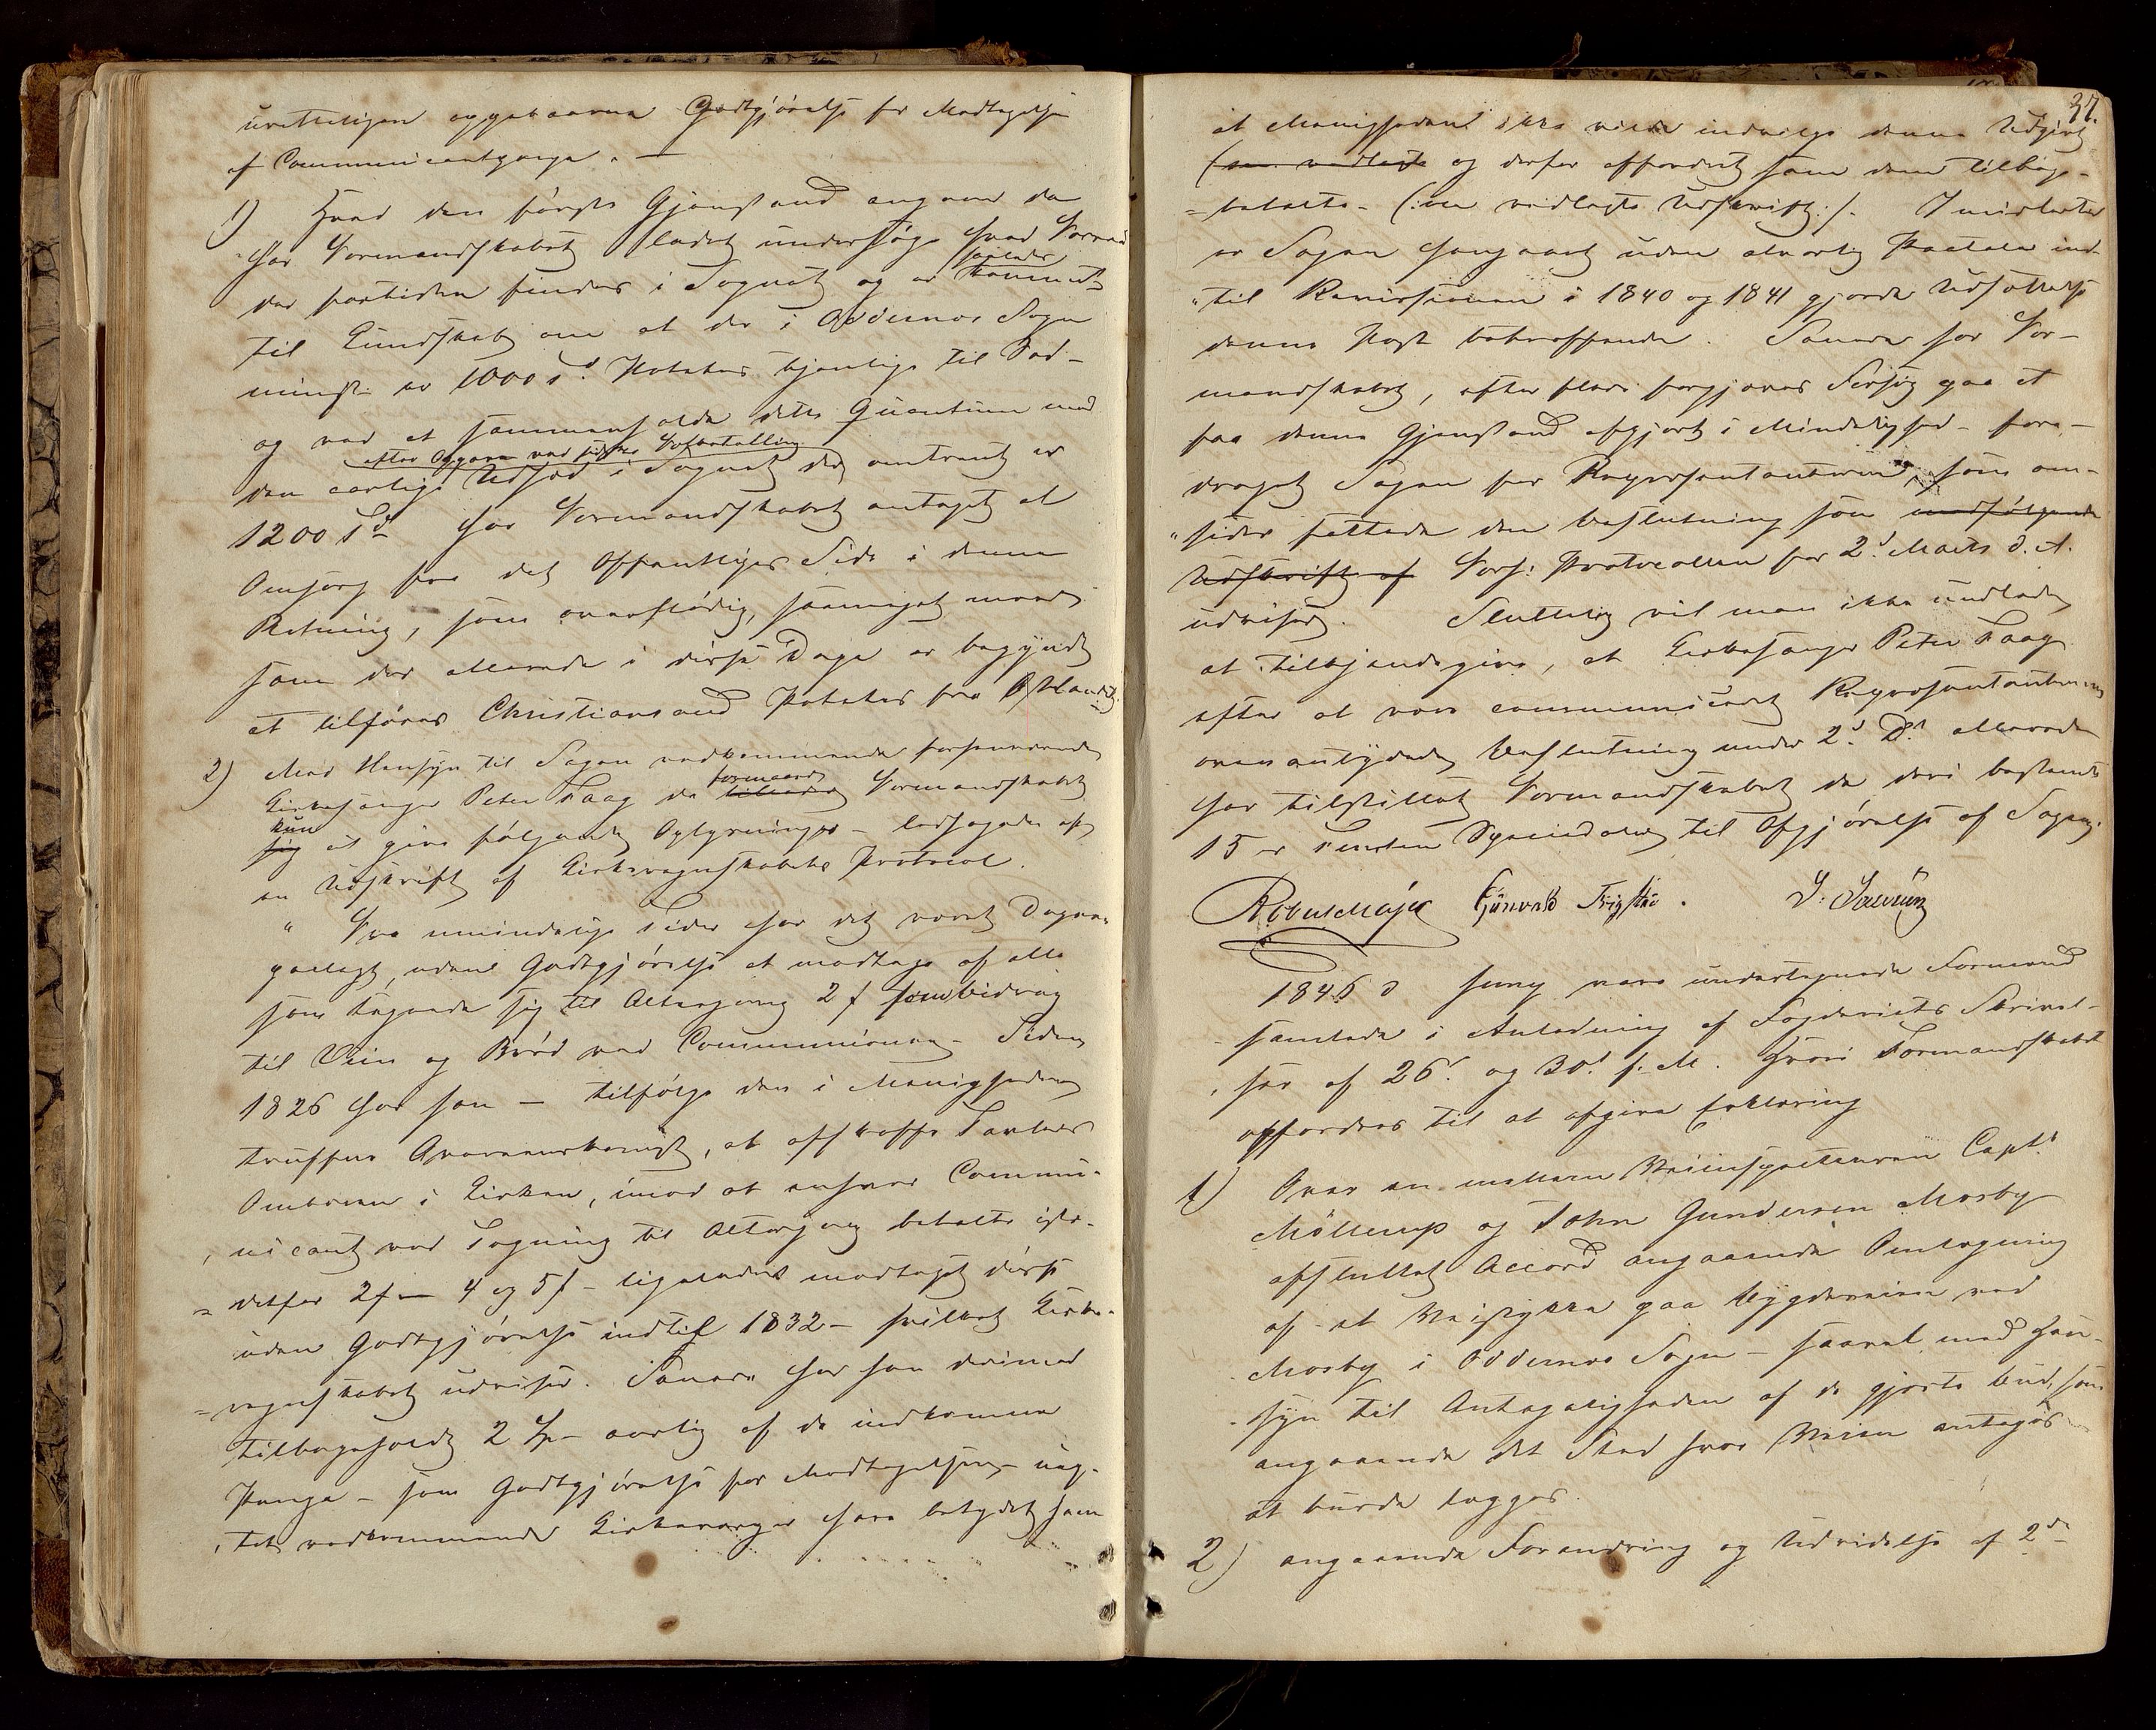 uretteligen oppebaarne Godtgjörelse for Modtagelse
af Communicantpenge. —
1) Hvad den förste Gjenstand angaaer da
har Formandskabet ladet undersöge hvad Forraad
der for tiden findes i Sognet og er saaledes kommet
til Kundskab om at der i Oddernes Sogn
mindst er 1000 Td. Potetes tjenlige til Sæd —
og ved at sammenholde dette Quantum med
den aarlige Udsæd i Sognet der efter Opgave ved sidste Folketælling omtrent er
1200 Td har Formandskabet antaget at
Omsorg fra det Offentliges Side i denne
Retning, som overflödig, saameget meere
som der allerede i disse Dage er begyndt
at tilföres Christiansand Potetes fra Östlandet.
2) Med Hensyn til Sagen vedkommende forhenværende
Kirkesanger Peter Taag da formaaer Formandskabet
kun at give fölgende Oplysninger — ledsagede af
en Udskrift af Kirkeregnskabets Protocol.
" Fra umindelige Tider har det været
paalagt, uden Godtgjörelse at modtage af alle
som tegnede sig til Altergang 2 s som bidrag
til Viin og Bröd ved Communionen. Siden
1826 har han — tilfölge den i Menigheden
trufne Overeenskomst, at afskaffe Tavlers
Ombæren i Kirken, imod at enhver Commu-
nicant ved Tegning til Altergang betalte iste-
detfor 2 s — 4 og 5 s — ligeledes modtaget disse
uden Godtgjörelse indtil 1832 — hvilket Kirke-
regnskabet udviser. Senere har han derimod
tilbageholdt 2 Sp — aarlig af de indkomne
Penge — som Godtgjörelse for Modtagelsen, — uag-
tet vedkommende Kirkeværger have betydet ham
37.
at Menigheden ikke vilde indvilge denne Udgivt
og derfor affordret ham dem tilbage-
betalte — (: see vedlagte Udskrift :). Imidlertid
er Sagen hengaaet uden alvorlig Paatale ind-
til Revisionen i 1840 og 1841 gjorde Udsættelse
denne Post betræffende. Senere har For-
mandskabet, efter flere forgjæves Forsög paa at
faa denne Gjenstand afgjort i Mindelighed — fore-
draget Sagen for Repræsentanterne, som om-
sider fattede den Beslutning som medfölgende
Udskrift af Forh: Protocollen for 2d Marts d. A.
udviser. Sluttelig vil man ikke undlade
at tilkjendegive, at Kirkesanger Peter Taag
efter at være communiceret Repræsentanternes
ovenantydede Beslutning under 2d Ds allerede
har tilstillet Formandskabet de deri bestemte
15 — femten Speciedaler til Afgjörelse af Sagen.
Gunvald Trigstad. J. Jensen
1846 d Juny vare undertegnede Formænd
samlede i Anledning af Fogderiets Skrivel-
ser af 26d og 30d f. M. hvori Formandskabet
opfordres til at afgive Erklæring
1) Over en mellem Veiinspecteuren Capt.
Möllerup og John Gundersen Mosby
afsluttet Accord angaaende Omlægning
af et Veistykke paa Bygdeveien ved
Mosby i Oddernes Sogn — saavel med Hen-
syn til Antageligheden af de gjorte Bud, som
angaaende det Sted hvor Veien antages
at burde lægges.
2) angaaende Forandring og Udvidelse af 2de